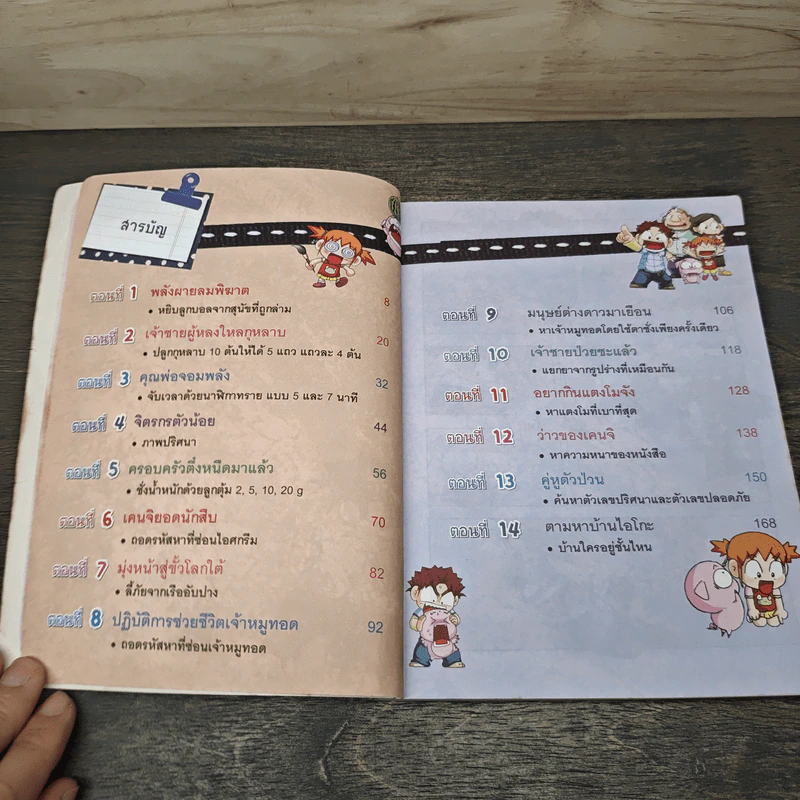 สารบัญ
ตอนที่ 1 พลังผายลมพิฆาต 8
• หยิบลูกบอลจากสุนัขที่ถูกล่าม
ตอนที่ 2 เจ้าชายผู้หลงใหลกุหลาบ 20
• ปลูกกุหลาบ 10 ต้นให้ได้ 5 แถว แถวละ 4 ต้น
ตอนที่ 3 คุณพ่อจอมพลัง 32
• จับเวลาด้วยนาฬิกาทราย แบบ 5 และ 7 นาที
ตอนที่ 4 จิตรกรตัวน้อย 44
• ภาพปริศนา
ตอนที่ 5 ครอบครัวตึ๋งหนืดมาแล้ว 56
• ชั่งน้ำหนักด้วยลูกตุ้ม 2, 5, 10, 20 g
ตอนที่ 6 เคนจิยอดนักสืบ 70
• ถอดรหัสหาที่ซ่อนไอศกรีม
ตอนที่ 7 มุ่งหน้าสู่ขั้วโลกใต้ 82
• ลี้ภัยจากเรืออับปาง
ตอนที่ 8 ปฏิบัติการช่วยชีวิตเจ้าหมูทอด 92
• ถอดรหัสหาที่ซ่อนเจ้าหมูทอด
ตอนที่ 9 มนุษย์ต่างดาวมาเยือน 106
• หาเจ้าหมูทอดโดยใช้ตาชั่งเพียงครั้งเดียว
ตอนที่ 10 เจ้าชายป่วยซะแล้ว 118
• แยกยาจากรูปร่างที่เหมือนกัน
ตอนที่ 11 อยากกินแตงโมจัง 128
• หาแตงโมที่เบาที่สุด
ตอนที่ 12 ว่าวของเคนจิ 138
• หาความหนาของหนังสือ
ตอนที่ 13 คู่หูตัวป่วน 150
• ค้นหาตัวเลขปริศนาและตัวเลขปลอดภัย
ตอนที่ 14 ตามหาบ้านไอโกะ 168
• บ้านใครอยู่ชั้นไหน